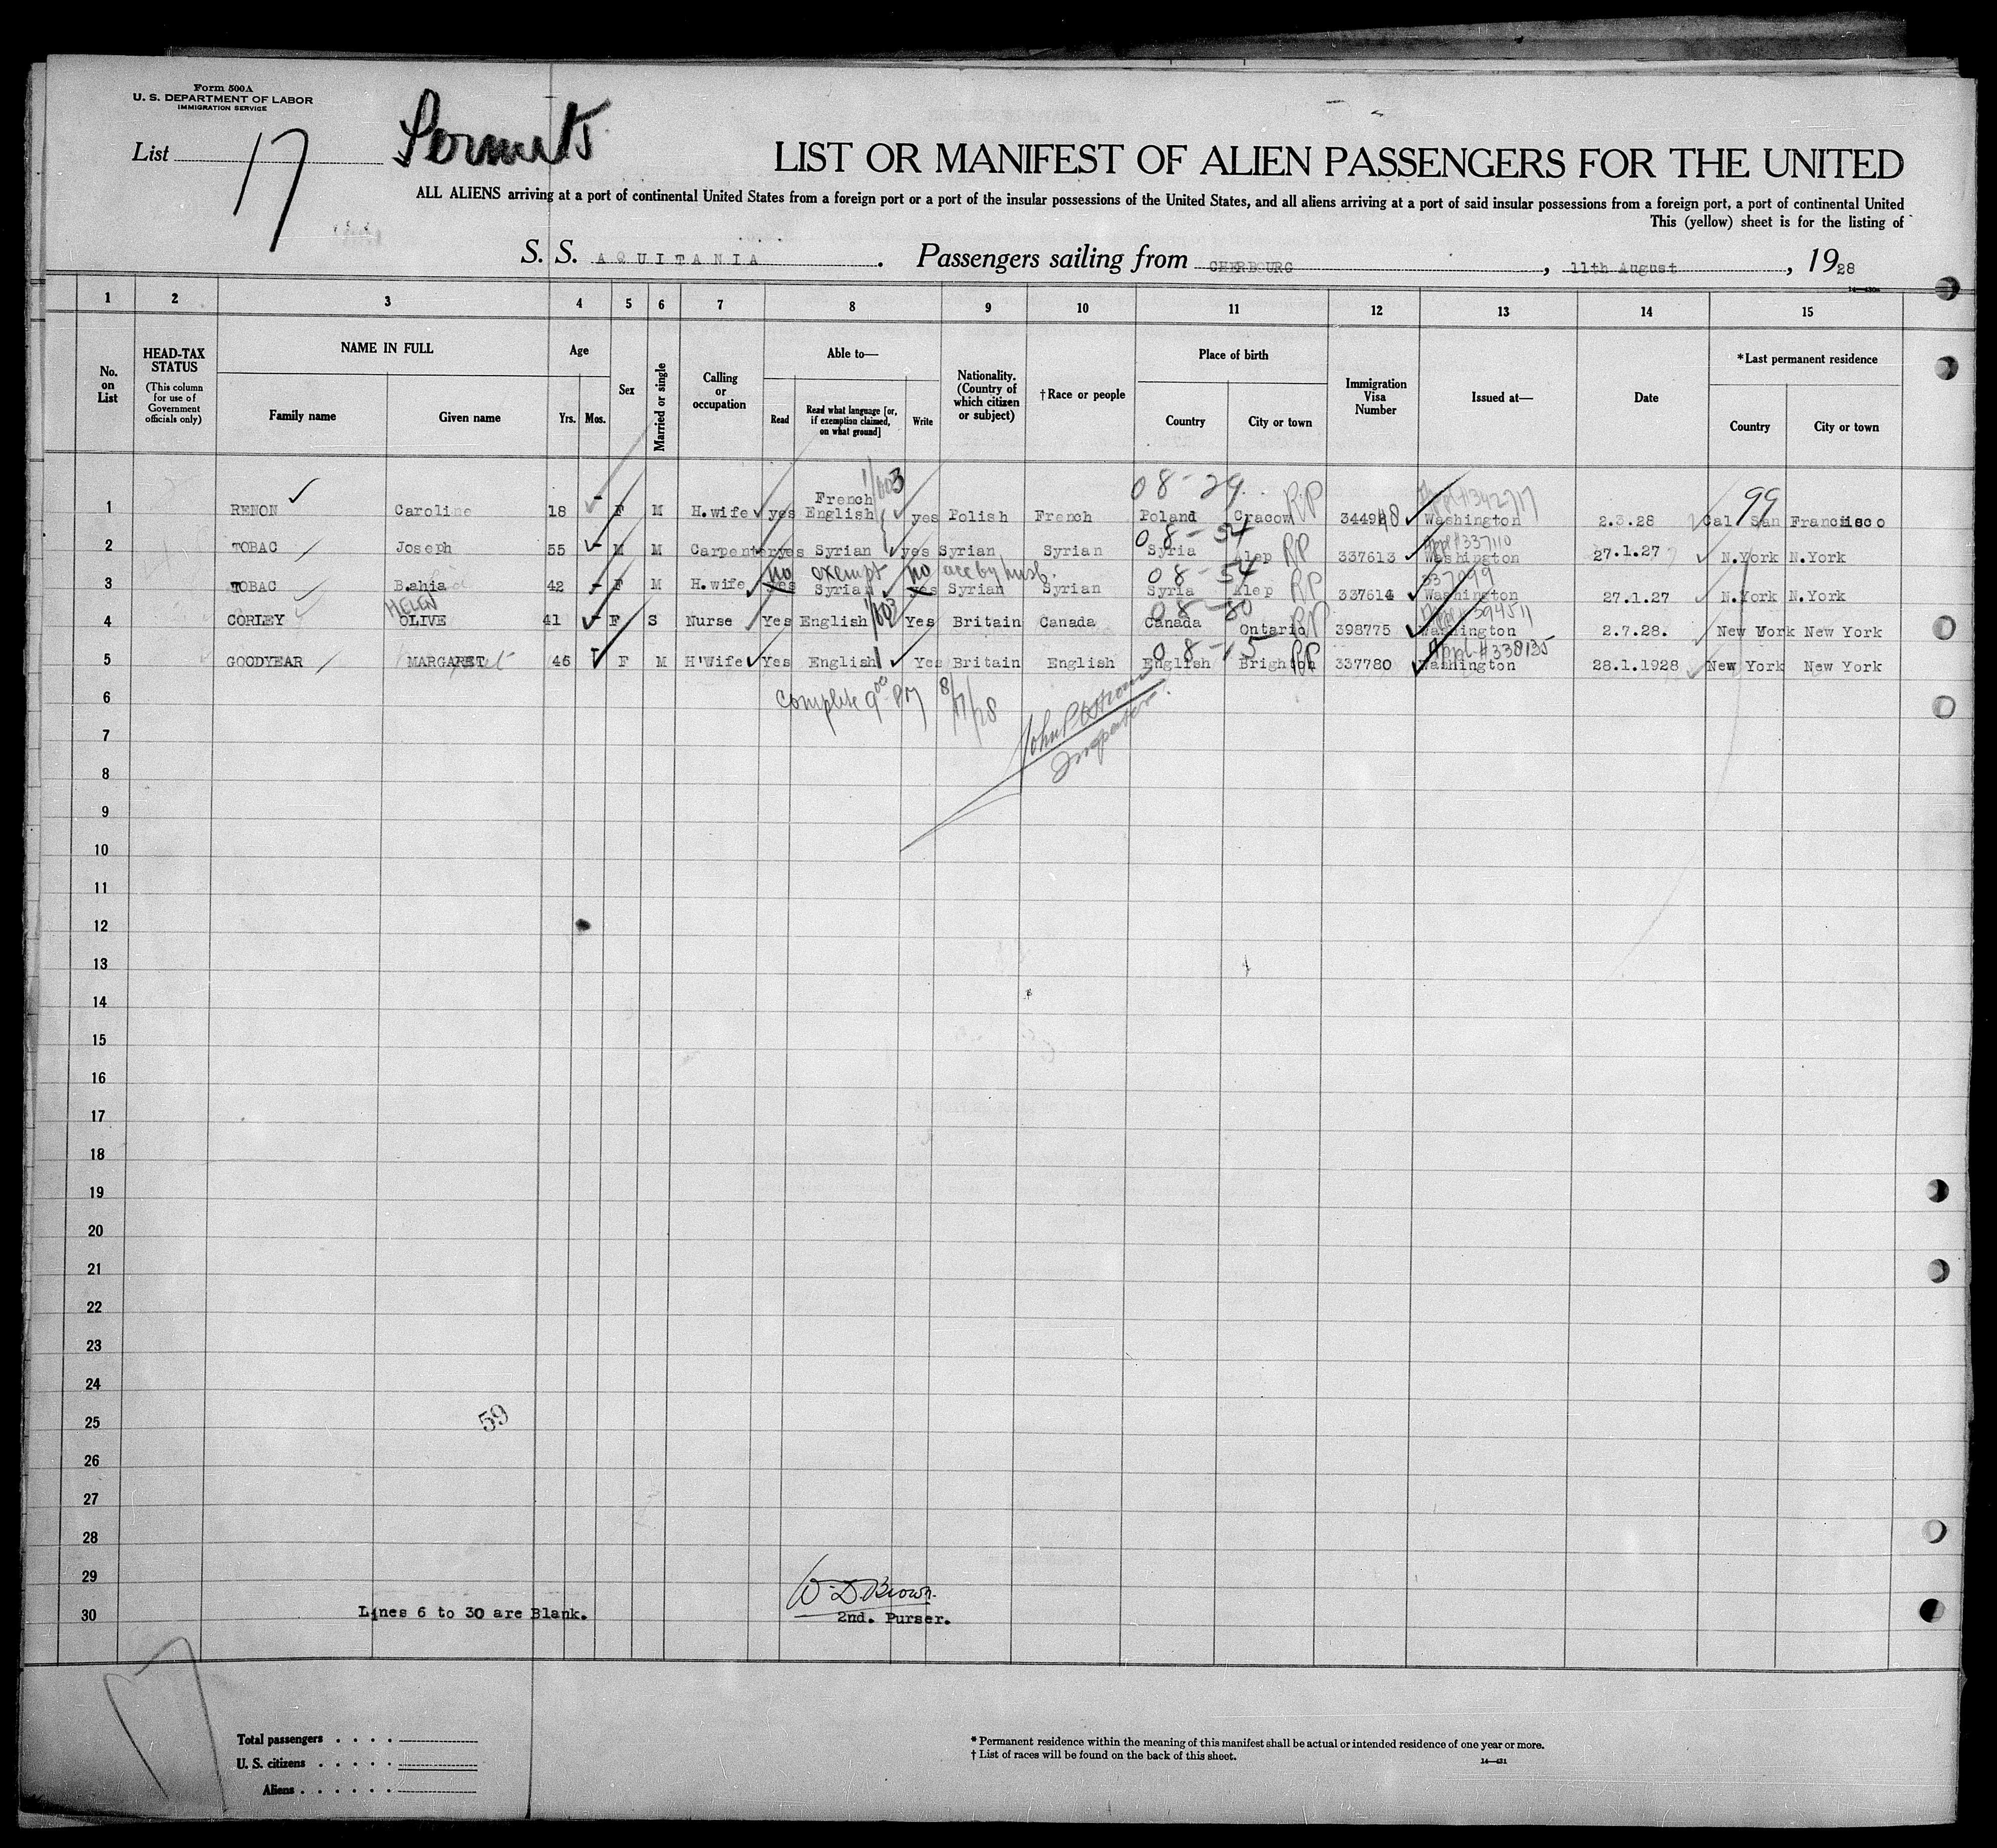 Form 500A
U. S. DEPARTMENT OF LABOR
IMMIGRATION SERVICE
List 17
Permits
LIST OR MANIFEST OF ALIEN PASSENGERS FOR THE UNITED
ALL ALIENS arriving at a port of continental United States from a foreign port or a port of the insular possessions of the United States, and all aliens arriving at a port of said insular possessions from a foreign port, a port of continental United
This (yellow) sheet is for the listing of
S. S. AQUITANIA. Passengers sailing from CHERBOURG, 11th August, 1928
1 2 3 4 5 6 7 8 9 10 11 12 13 14 15
No. on List
HEAD-TAX STATUS (This column for use of Government officials only)
NAME IN FULL
Family name Given name
Age
Yrs. Mos.
Sex
Married or single
Calling or occupation
Able to—
Read Read what language [or, if exemption claimed, on what ground] Write
Nationality. (Country of which citizen or subject)
†Race or people
Place of birth
Country City or town
Immigration Visa Number
Issued at—
Date
*Last permanent residence
Country City or town
1/603 08-29 99
1 RENON Caroline 18 F M H.wife yes French English yes Polish French Poland Cracow RP 344948 Washington Appl #342717 2.3.28 Cal San Francisco
08-54 Appl #337110
2 TOBAC Joseph 55 M M Carpenter yes Syrian yes Syrian Syrian Syria Alep RP 337613 Washington 27.1.27 N.York N.York
no exempt no acc by husb. 08-54 337099
3 TOBAC Bahia 42 F M H.wife yes Syrian yes Syrian Syrian Syria Alep RP 337614 Washington 27.1.27 N.York N.York
HELEN 1/603 08-80 Appl #394511
4 CORLEY OLIVE 41 F S Nurse Yes English Yes Britain Canada Canada Ontario RP 398775 Washington 2.7.28. New York New York
08-15 Appl #338135
5 GOODYEAR MARGARET 46 F M H'Wife Yes English Yes Britain English English Brighton RP 337780 Washington 28.1.1928 New York New York
6 Complete 9 00 PM 8/17/28
7 Inspector.
8
9
10
11
12
13
14
15
16
17
18
19
20
21
22
23
24
25 59
26
27
28
29 W. D. Brown.
30 Lines 6 to 30 are Blank. 2nd. Purser.
17
Total passengers . . . .
U. S. citizens . . . . .
Aliens . . . . . .
* Permanent residence within the meaning of this manifest shall be actual or intended residence of one year or more.
† List of races will be found on the back of this sheet.
14—431